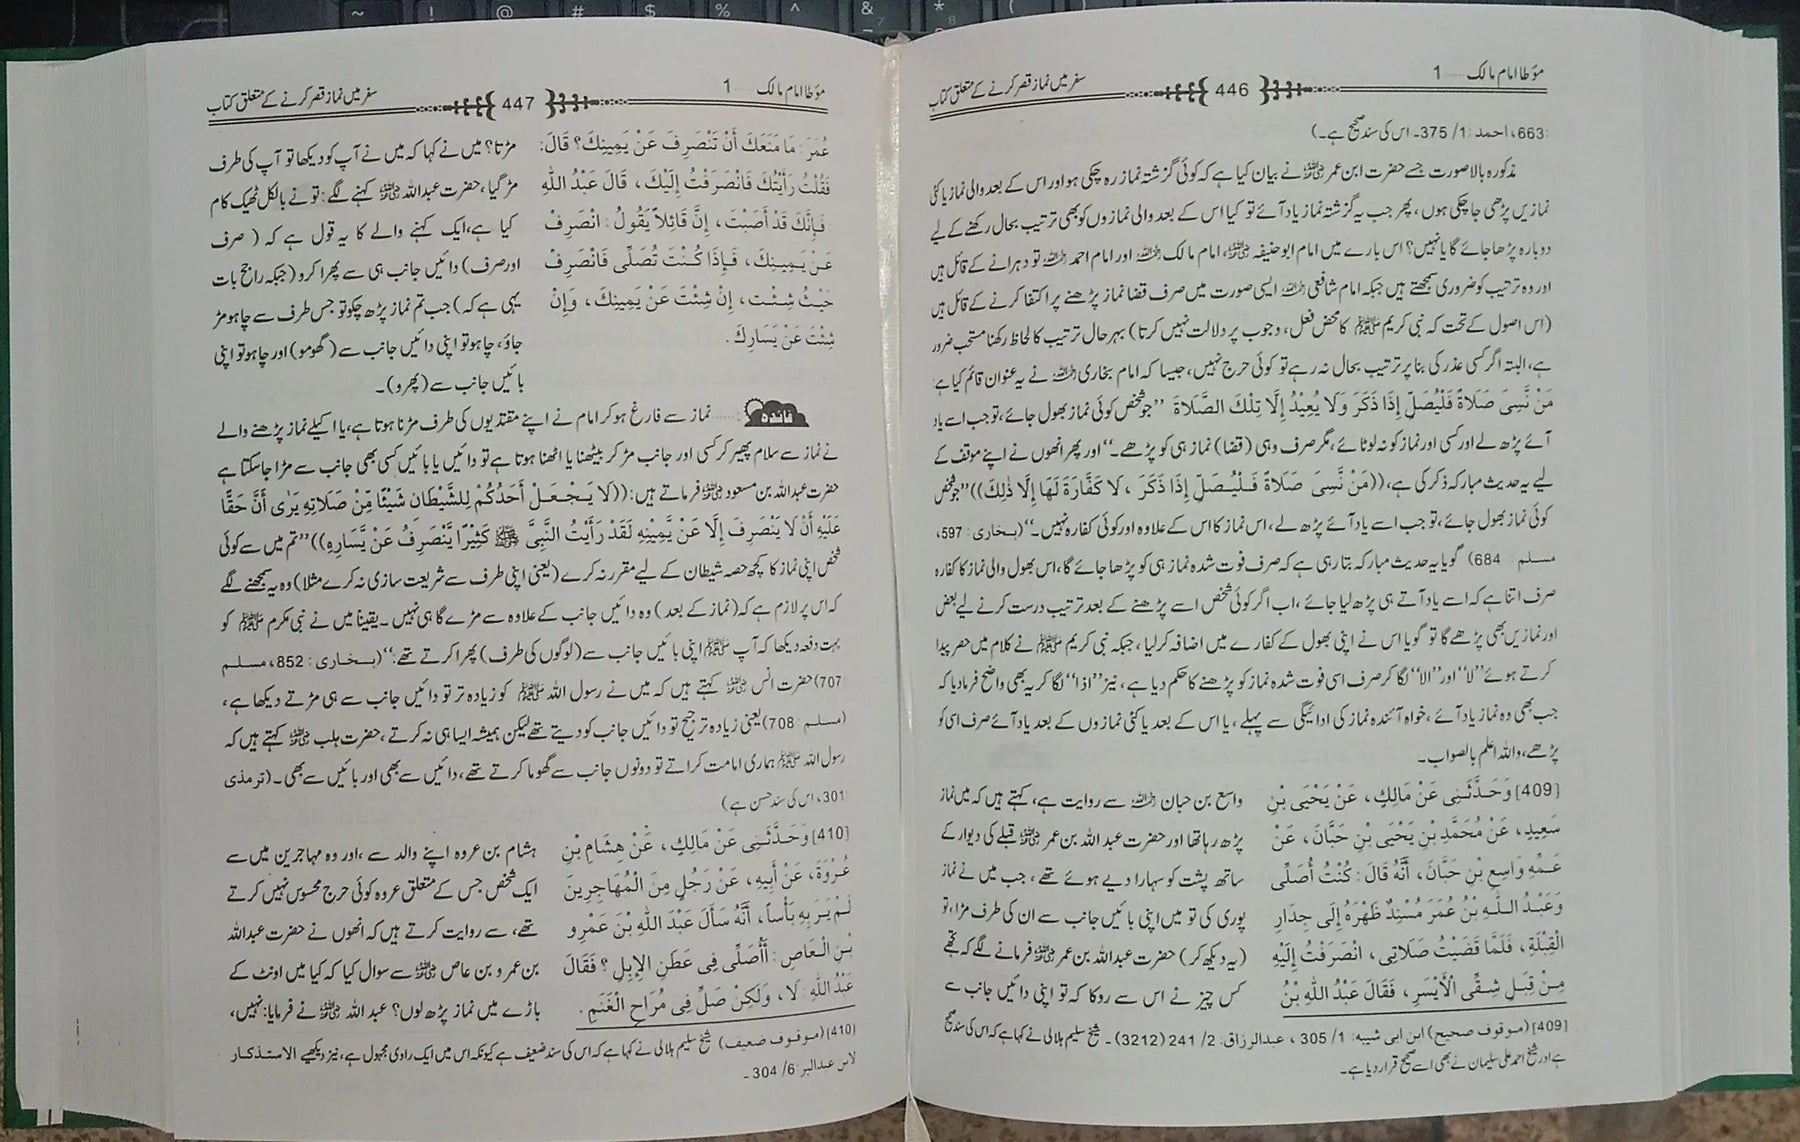 موّطا امام مالک ...... 1
446
سفر میں نماز قصر کرنے کے متعلق کتاب
663، احمد : 1/ 375۔ اس کی سند صحیح ہے۔)
مذکورہ بالا صورت جسے حضرت ابن عمر رضی اللہ عنہما نے بیان کیا ہے کہ کوئی گزشتہ نماز رہ چکی ہو اور اس کے بعد والی نماز یا کئی
نمازیں پڑھی جا چکی ہوں، پھر جب یہ گزشتہ نماز یاد آئے تو کیا اس کے بعد والی نمازوں کو بھی ترتیب بحال رکھنے کے لیے
دوبارہ پڑھا جائے گا یا نہیں؟ اس بارے میں امام ابو حنیفہ، امام مالک اور امام احمد تو دہرانے کے قائل ہیں
اور وہ ترتیب کو ضروری سمجھتے ہیں جبکہ امام شافعی ایسی صورت میں صرف قضا نماز پڑھنے پر اکتفا کرنے کے قائل ہیں
(اس اصول کے تحت کہ نبی کریم ﷺ کا محض فعل، وجوب پر دلالت نہیں کرتا) بہر حال ترتیب کا لحاظ رکھنا مستحب ضرور
ہے، البتہ اگر کسی عذر کی بنا پر ترتیب بحال نہ رہے تو کوئی حرج نہیں، جیسا کہ امام بخاری نے یہ عنوان قائم کیا ہے:
مَنْ نَّسِیَ صَلَاةً فَلْیُصَلِّ إِذَا ذَکَرَ وَلَا یُعِیْدُ إِلَّا تِلْكَ الصَّلَاةَ ”جو شخص کوئی نماز بھول جائے، تو جب اسے یاد
آئے پڑھ لے اور کسی اور نماز کو نہ لوٹائے، مگر صرف وہی (قضا) نماز ہی کو پڑھے۔“ اور پھر انھوں نے اپنے موقف کے
لیے یہ حدیث مبارکہ ذکر کی ہے، ((مَنْ نَّسِیَ صَلَاةً فَلْیُصَلِّ إِذَا ذَکَرَ ، لَا کَفَّارَةَ لَهَا إِلَّا ذٰلِكَ)) ”جو شخص
کوئی نماز بھول جائے، تو جب اسے یاد آئے پڑھ لے، اس نماز کا اس کے علاوہ اور کوئی کفارہ نہیں۔“ (بخاری : 597،
مسلم : 684) گویا یہ حدیث مبارکہ بتا رہی ہے کہ صرف فوت شدہ نماز ہی کو پڑھا جائے گا، اس بھول والی نماز کا کفارہ
صرف اتنا ہے کہ اسے یاد آتے ہی پڑھ لیا جائے، اب اگر کوئی شخص اسے پڑھنے کے بعد ترتیب درست کرنے لیے بعض
اور نمازیں بھی پڑھے گا تو گویا اس نے اپنی بھول کے کفارے میں اضافہ کر لیا، جبکہ نبی کریم ﷺ نے کلام میں حصر پیدا
کرتے ہوئے ”لا“ اور ”الا“ لگا کر صرف اسی فوت شدہ نماز کو پڑھنے کا حکم دیا ہے، نیز ”اذا“ لگا کر یہ بھی واضح فرما دیا کہ
جب بھی وہ نماز یاد آئے، خواہ آئندہ نماز کی ادائیگی سے پہلے، یا اس کے بعد یا کئی نمازوں کے بعد یاد آئے صرف اسی کو
پڑھے، واللہ اعلم بالصواب۔
[409] وَحَدَّثَنِی عَنْ مَالِكٍ، عَنْ یَحْیَی بْنِ
سَعِیدٍ، عَنْ مُحَمَّدِ بْنِ یَحْیَی بْنِ حَبَّانَ، عَنْ
عَمِّهِ وَاسِعِ بْنِ حَبَّانَ، أَنَّهُ قَالَ: کُنْتُ أُصَلِّی
وَعَبْدُ اللّٰهِ بْنُ عُمَرَ مُسْنِدٌ ظَهْرَهُ إِلَی جِدَارِ
الْقِبْلَةِ، فَلَمَّا قَضَیْتُ صَلَاتِی، انْصَرَفْتُ إِلَیْهِ
مِنْ قِبَلِ شِقِّی الْأَیْسَرِ، فَقَالَ عَبْدُ اللّٰهِ بْنُ
واسع بن حبان سے روایت ہے، کہتے ہیں کہ میں نماز
پڑھ رہا تھا اور حضرت عبد اللہ بن عمر رضی اللہ عنہما قبلے کی دیوار کے
ساتھ پشت کو سہارا دیے ہوئے تھے، جب میں نے نماز
پوری کی تو میں اپنی بائیں جانب سے ان کی طرف مڑا، تو
(یہ دیکھ کر) حضرت عبداللہ بن عمر رضی اللہ عنہما فرمانے لگے کہ تجھے
کس چیز نے اس سے روکا کہ تو اپنی دائیں جانب سے
[409] (موقوف صحیح) ابن ابی شیبہ: 1/ 305 ، عبدالرزاق: 2/ 241 (3212)۔ شیخ سلیم ہلالی نے کہا ہے کہ اس کی سند صحیح
ہے اور شیخ احمد علی سلیمان نے بھی اسے صحیح قرار دیا ہے۔
موّطا امام مالک ...... 1
447
سفر میں نماز قصر کرنے کے متعلق کتاب
عُمَرَ: مَا مَنَعَكَ أَنْ تَنْصَرِفَ عَنْ یَمِینِكَ؟ قَالَ:
فَقُلْتُ رَأَیْتُكَ فَانْصَرَفْتُ إِلَیْكَ، قَالَ عَبْدُ اللّٰهِ
فَإِنَّكَ قَدْ أَصَبْتَ، إِنَّ قَائِلاً یَقُولُ: انْصَرِفْ
عَنْ یَمِینِكَ، فَإِذَا کُنْتَ تُصَلِّی فَانْصَرِفْ
حَیْثُ شِئْتَ، إِنْ شِئْتَ عَنْ یَمِینِكَ، وَإِنْ
شِئْتَ عَنْ یَسَارِكَ.
مڑتا؟ میں نے کہا کہ میں نے آپ کو دیکھا تو آپ کی طرف
مڑ گیا، حضرت عبداللہ رضی اللہ عنہ کہنے لگے: تو نے بالکل ٹھیک کام
کیا ہے، ایک کہنے والے کا یہ قول ہے کہ ( صرف
اور صرف) دائیں جانب ہی سے پھرا کرو (جبکہ راجح بات
یہی ہے کہ) جب تم نماز پڑھ چکو تو جس طرف سے چاہو مڑ
جاؤ، چاہو تو اپنی دائیں جانب سے (گھومو) اور چاہو تو اپنی
بائیں جانب سے (پھرو)۔
فائدہ : ...... نماز سے فارغ ہو کر امام نے اپنے مقتدیوں کی طرف مڑنا ہوتا ہے، یا اکیلے نماز پڑھنے والے
نے نماز سے سلام پھیر کر کسی اور جانب مڑ کر بیٹھنا یا اٹھنا ہوتا ہے تو دائیں یا بائیں کسی بھی جانب سے مڑا جا سکتا ہے
حضرت عبداللہ بن مسعود رضی اللہ عنہ فرماتے ہیں: ((لَا یَجْعَلْ أَحَدُکُمْ لِلشَّیْطَانِ شَیْئًا مِّنْ صَلَاتِهِ یَرٰی أَنَّ حَقًّا
عَلَیْهِ أَنْ لَا یَنْصَرِفَ إِلَّا عَنْ یَّمِیْنِهِ لَقَدْ رَأَیْتُ النَّبِیَّ ﷺ کَثِیْرًا یَّنْصَرِفُ عَنْ یَّسَارِهِ)) ”تم میں سے کوئی
شخص اپنی نماز کا کچھ حصہ شیطان کے لیے مقرر نہ کرے (یعنی اپنی طرف سے شریعت سازی نہ کرے مثلاً) وہ یہ سمجھنے لگے
کہ اس پر لازم ہے کہ (نماز کے بعد) وہ دائیں جانب کے علاوہ سے مڑے گا ہی نہیں۔ یقیناً میں نے نبی مکرم ﷺ کو
بہت دفعہ دیکھا کہ آپ ﷺ اپنی بائیں جانب سے (لوگوں کی طرف) پھرا کرتے تھے:“ (بخاری : 852، مسلم
707) حضرت انس رضی اللہ عنہ کہتے ہیں کہ میں نے رسول اللہ ﷺ کو زیادہ تر تو دائیں جانب سے ہی مڑتے دیکھا ہے،
(مسلم : 708) یعنی زیادہ ترجیح تو دائیں جانب کو دیتے تھے لیکن ہمیشہ ایسا ہی نہ کرتے، حضرت ہلب رضی اللہ عنہ کہتے ہیں کہ
رسول اللہ ﷺ ہماری امامت کراتے تو دونوں جانب سے گھوما کرتے تھے، دائیں سے بھی اور بائیں سے بھی۔ (ترمذی
301، اس کی سند حسن ہے)
[410] وَحَدَّثَنِی عَنْ مَالِكٍ، عَنْ هِشَامِ بْنِ
عُرْوَةَ، عَنْ أَبِیهِ، عَنْ رَجُلٍ مِنَ الْمُهَاجِرِینَ
لَمْ یَرَ بِهِ بَأْساً، أَنَّهُ سَأَلَ عَبْدَ اللّٰهِ بْنَ عَمْرِو
بْنِ الْعَاصِ: أَأُصَلِّی فِی عَطَنِ الإِبِلِ؟ فَقَالَ
عَبْدُ اللّٰهِ: لَا، وَلَکِنْ صَلِّ فِی مُرَاحِ الْغَنَمِ.
ہشام بن عروہ اپنے والد سے، اور وہ مہاجرین میں سے
ایک شخص جس کے متعلق عروہ کوئی حرج محسوس نہیں کرتے
تھے، سے روایت کرتے ہیں کہ انھوں نے حضرت عبداللہ
بن عمرو بن عاص رضی اللہ عنہما سے سوال کیا کہ کیا میں اونٹ کے
باڑے میں نماز پڑھ لوں؟ عبداللہ رضی اللہ عنہ نے فرمایا: نہیں،
[410] (موقوف ضعیف) شیخ سلیم ہلالی نے کہا ہے کہ اس کی سند ضعیف ہے کیونکہ اس میں ایک راوی مجہول ہے، نیز دیکھیے الاستذکار
لابن عبدالبر: 6/ 304۔